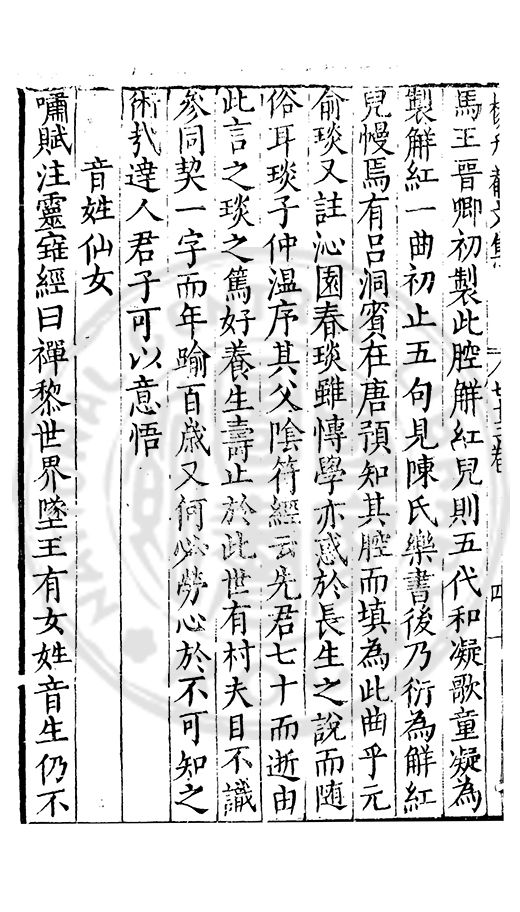 馬王晉卿初製此腔解紅兒則五代和凝歌童凝為
製解紅一曲初止五句見陳氏樂書後乃衍為解紅
兒慢焉有吕洞賓在唐預知其腔而填為此曲乎元
俞琰又註沁園春琰雖博學亦惑於長生之說而随
俗耳琰子仲温序其父隂符經云先君七十而逝由
此言之琰之篤好養生壽止於此世有村夫目不識
參同契一字而年踰百歲又何必勞心於不可知之
術㢤達人君子可以意悟
音姓仙女
嘯賦注靈寳經曰禪黎世界墜王有女姓音生仍不